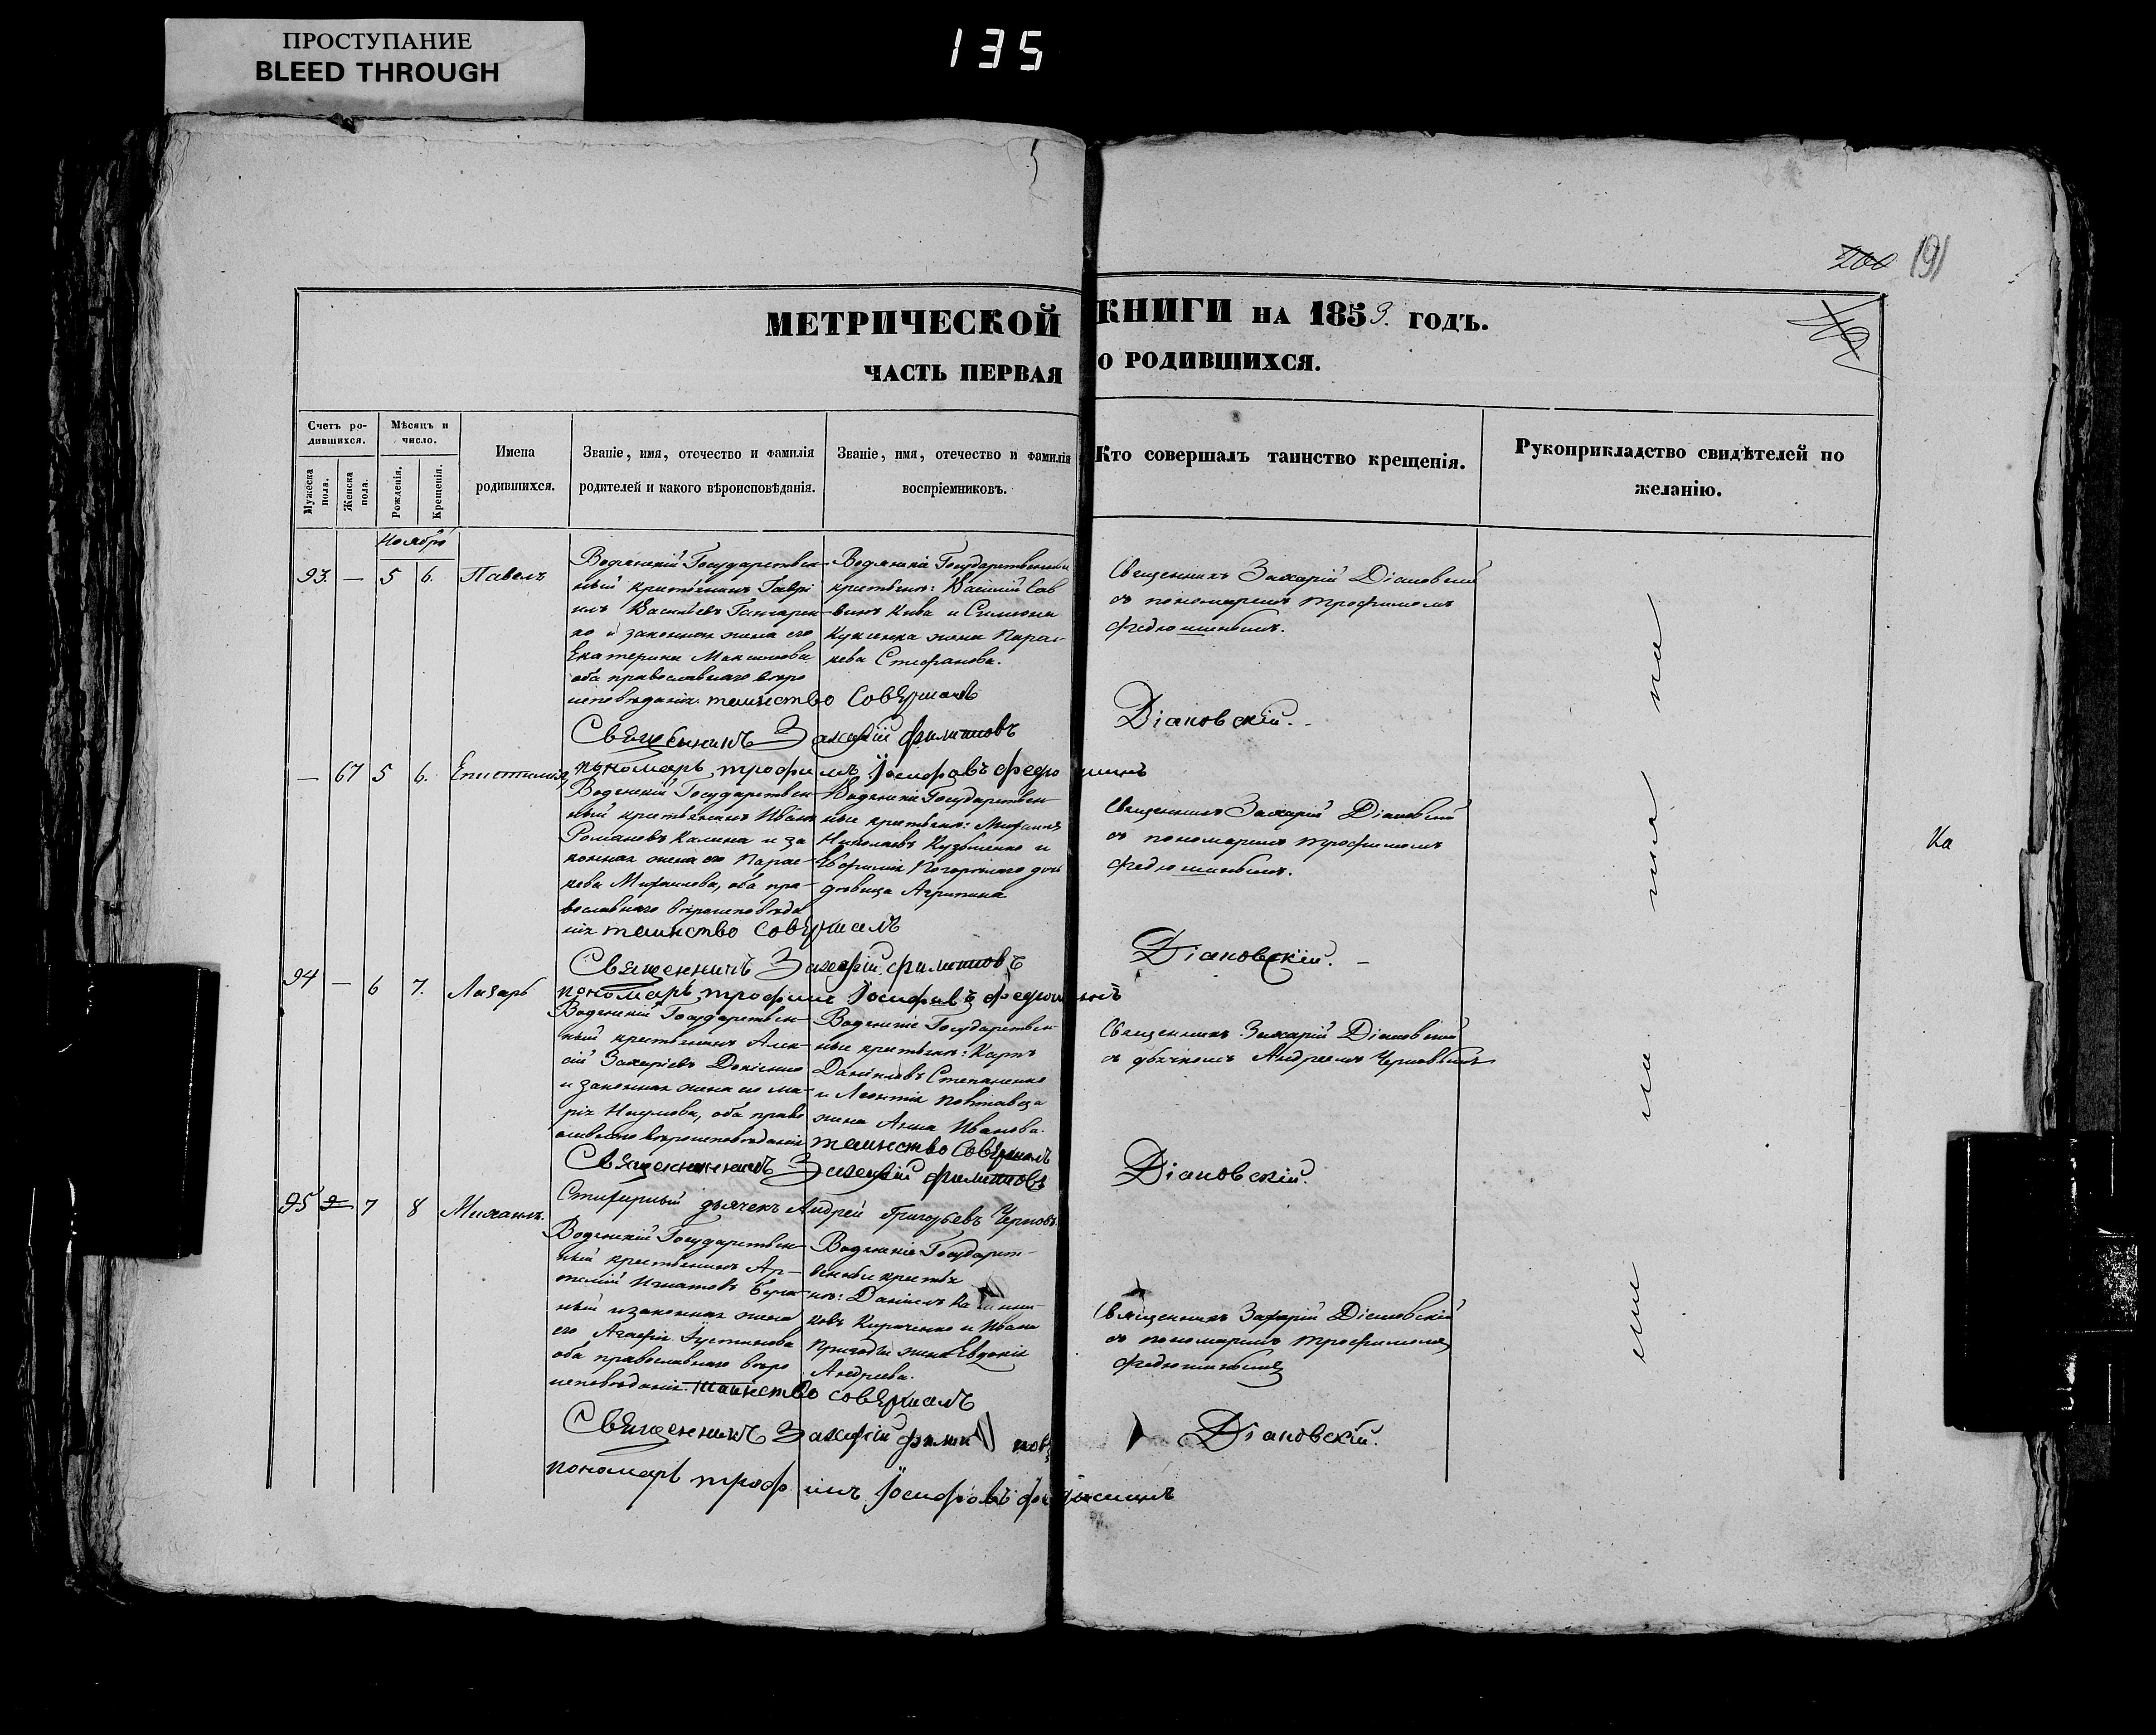 ПРОСТУПАНИЕ
BLEED THROUGH
135
200 191
МЕТРИЧЕСКОЙ КНИГИ НА 1859. ГОДЪ.
ЧАСТЬ ПЕРВАЯ О РОДИВШИХСЯ.
Счетъ ро-
дившихся.
Мужеска
пола.
Женска
пола.
Мѣсяцъ и
число.
Рожденія.
Крещенія.
Имена
родившихся.
Званіе, имя, отечество и фамилія
родителей и какого вѣроисповѣданія.
Званіе, имя, отечество и фамилія
воспріемниковъ.
Кто совершалъ таинство крещенія.
Рукоприкладство свидѣтелей по
желанію.
Ноября
93. — 5 6. Павелъ
Государствен-
ный крестьянинъ Гаврі
илъ Васильевъ
ко и законная жена его
Екатерина Максимова
оба православнаго вѣро
исповѣданія. таинство совершалъ
Священникъ Захарій Филиповъ
пономарь трофимъ Іосифовъ Федюшинъ
Государственные
крестьяне: Василій Сав
винъ Кива и Симеона
жена Парас-
кева Стефанова.
Священникъ Захарій Діановскій
съ пономаремъ Трофимомъ
Федюшинымъ.
Діановскій.
— 67 5 6. Епистимія
Государствен-
ный крестьянинъ Иванъ
Романовъ Калина и за
конная жена его Парас-
кева Михайлова, оба пра-
вославнаго вѣроисповѣда
нія таинство совершалъ
Священникъ Захарій Филиповъ
пономарь трофимъ Іосифовъ Федюшинъ
Государствен-
ные крестьяне:
Николаевъ Кузьменко и
Евфимія
Агрипина
Священникъ Захарій Діановскій
съ пономаремъ Трофимомъ
Федюшинымъ.
Діановскій.
Ка
94 — 6 7. Лазарь
Государствен-
ный крестьянинъ Алек-
сій Захаріевъ
и законная жена его Ма-
рія Наумова, оба право
славнаго вѣроисповѣданія таинство совершалъ
Священникъ Захарій Филиповъ
дьячекъ Андрей Григорьевъ Черновъ
Государствен-
ные крестьяне: Карпъ
Даніиловъ Степаненко
и Леонтія
жена Анна Иванова.
Священникъ Захарій Діановскій
съ дьячкомъ Андреемъ Черновымъ
Діановскій.
95 7 8 Михаилъ.
Государствен-
ный крестьянинъ Ар-
темій Игнатовъ
ный и законная жена
его Агафія Іустинова
оба православнаго вѣро
исповѣданія. таинство совершалъ
Священникъ Захарій Филиповъ
пономарь трофимъ Іосифовъ Федюшинъ
Государст-
венные крестья
не: Даніилъ
ковъ Кириченко и Ивана
жена Евдокія
Андреева.
Священникъ Захарій Діановскій
съ пономаремъ Трофимомъ
Федюшинымъ
Діановскій.